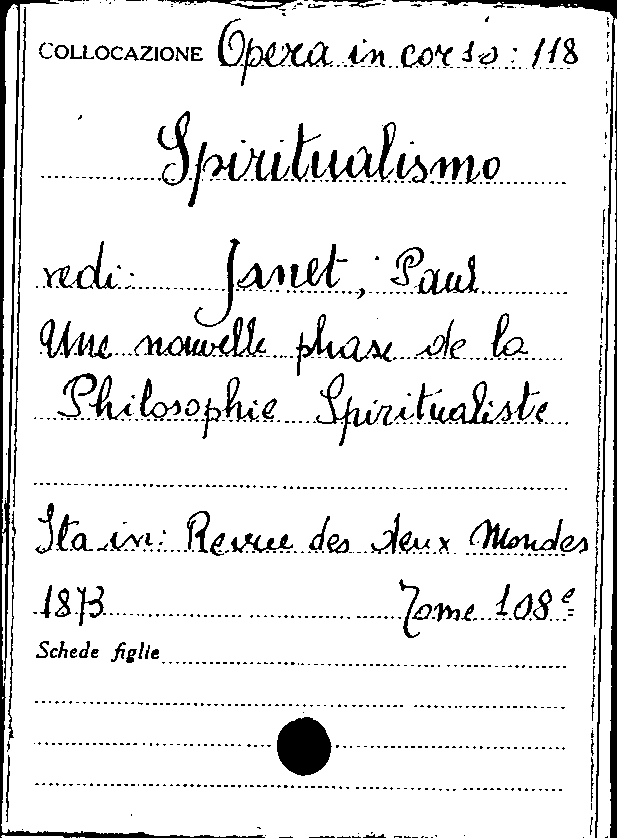 COLLOCAZIONE Opera in corso: 118
Spiritualismo
vedi: Janet, Paul
Une nouvelle phase de la
Philosophie Spiritualiste
Sta in: Revue des deux Mondes
1873 Tome 108e
Schede figlie